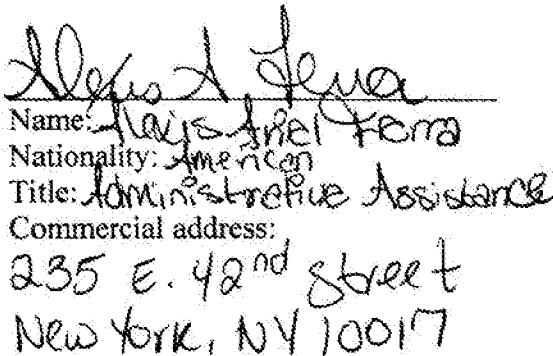 Alexis A Ferra
Name: Alexis Ariel Ferra
Nationality: American
Title: Administrative Assistance
Commercial address:
235 E. 42nd Street
New York, NY 10017